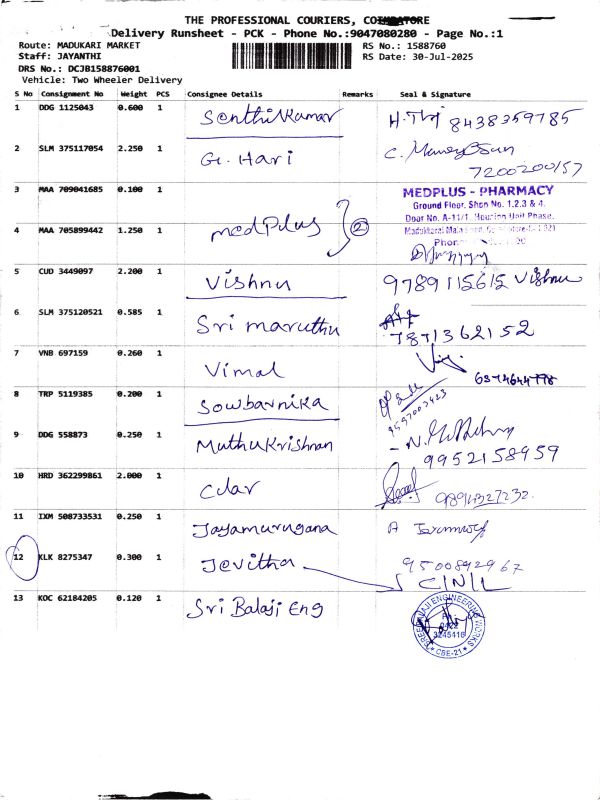 THE PROFESSIONAL COURIERS, COIMBATORE
Delivery Runsheet - PCK - Phone No.:9047080280 - Page No.:1
Route: MADUKARI MARKET
RS No.: 1588760
Staff: JAYANTHI
RS Date: 30-Jul-2025
DRS No.: DCJB158876001
Vehicle: Two Wheeler Delivery
S No Consignment No Weight PCS Consignee Details Remarks Seal & Signature
1 DDG 1125043 0.600 1 Senthilkumar 8438359785
2 SLM 375117054 2.250 1 G. Hari 7200200157
3 MAA 709041685 0.100 1
MEDPLUS - PHARMACY
Ground Floor, Shop No. 1,2,3 & 4.
Door No. A-11/1, Housing Unit Phase,
4 MAA 705899442 1.250 1 medplus 2
5 CUD 3449097 2.200 1 Vishnu 9789115615 Vishnu
6 SLM 375120521 0.585 1 Sri maruthu 7871362152
7 VNB 697159 0.260 1 Vimal
8 TRP 5119385 0.200 1 Sowbarnika
9 DDG 558873 0.250 1 Muthukrishnan
9952158959
10 HRD 362299861 2.000 1 Cdar 9894327232
11 IXM 508733531 0.250 1 Jayamurugana
12 KLK 8275347 0.300 1 Jevitha 9500892967
C/N/L
13 KOC 62184205 0.120 1 Sri Balaji Eng
CBE-21